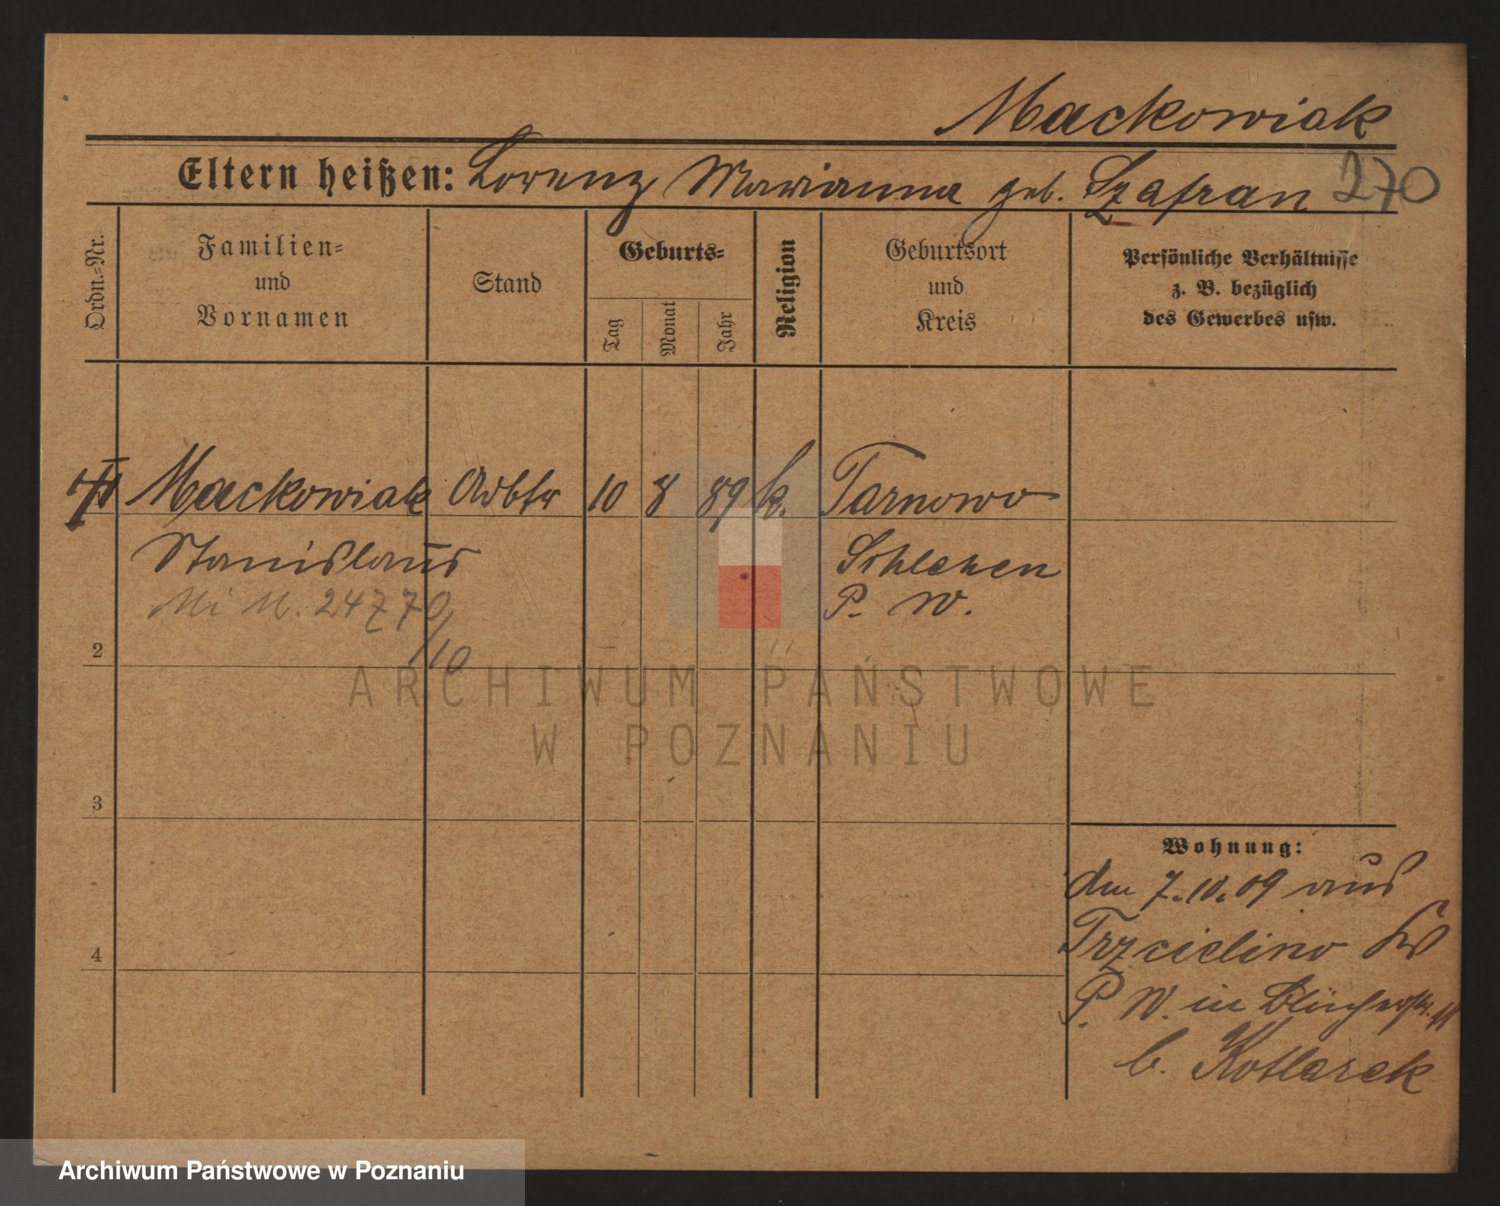 Mackowiak
Eltern heißen: Lorenz Marianna geb. Szafran 270
Ordn.-Nr.
Familien-
und
Vornamen
Stand
Geburts-
Tag
Monat
Jahr
Religion
Geburtsort
und
Kreis
Persönliche Verhältnisse
z. B. bezüglich
des Gewerbes usw.
Mackowiak Arbtr 10 8 89 k. Tarnowo
Stanislaus
Schlehen
P. W.
Mi N. 24770/10
2
3
4
Wohnung:
den 7.10.09 aus
Trzcielino
P. W. in Blücherstr. 11
b. Kotlarek
ARCHIWUM PAŃSTWOWE
W POZNANIU
Archiwum Państwowe w Poznaniu